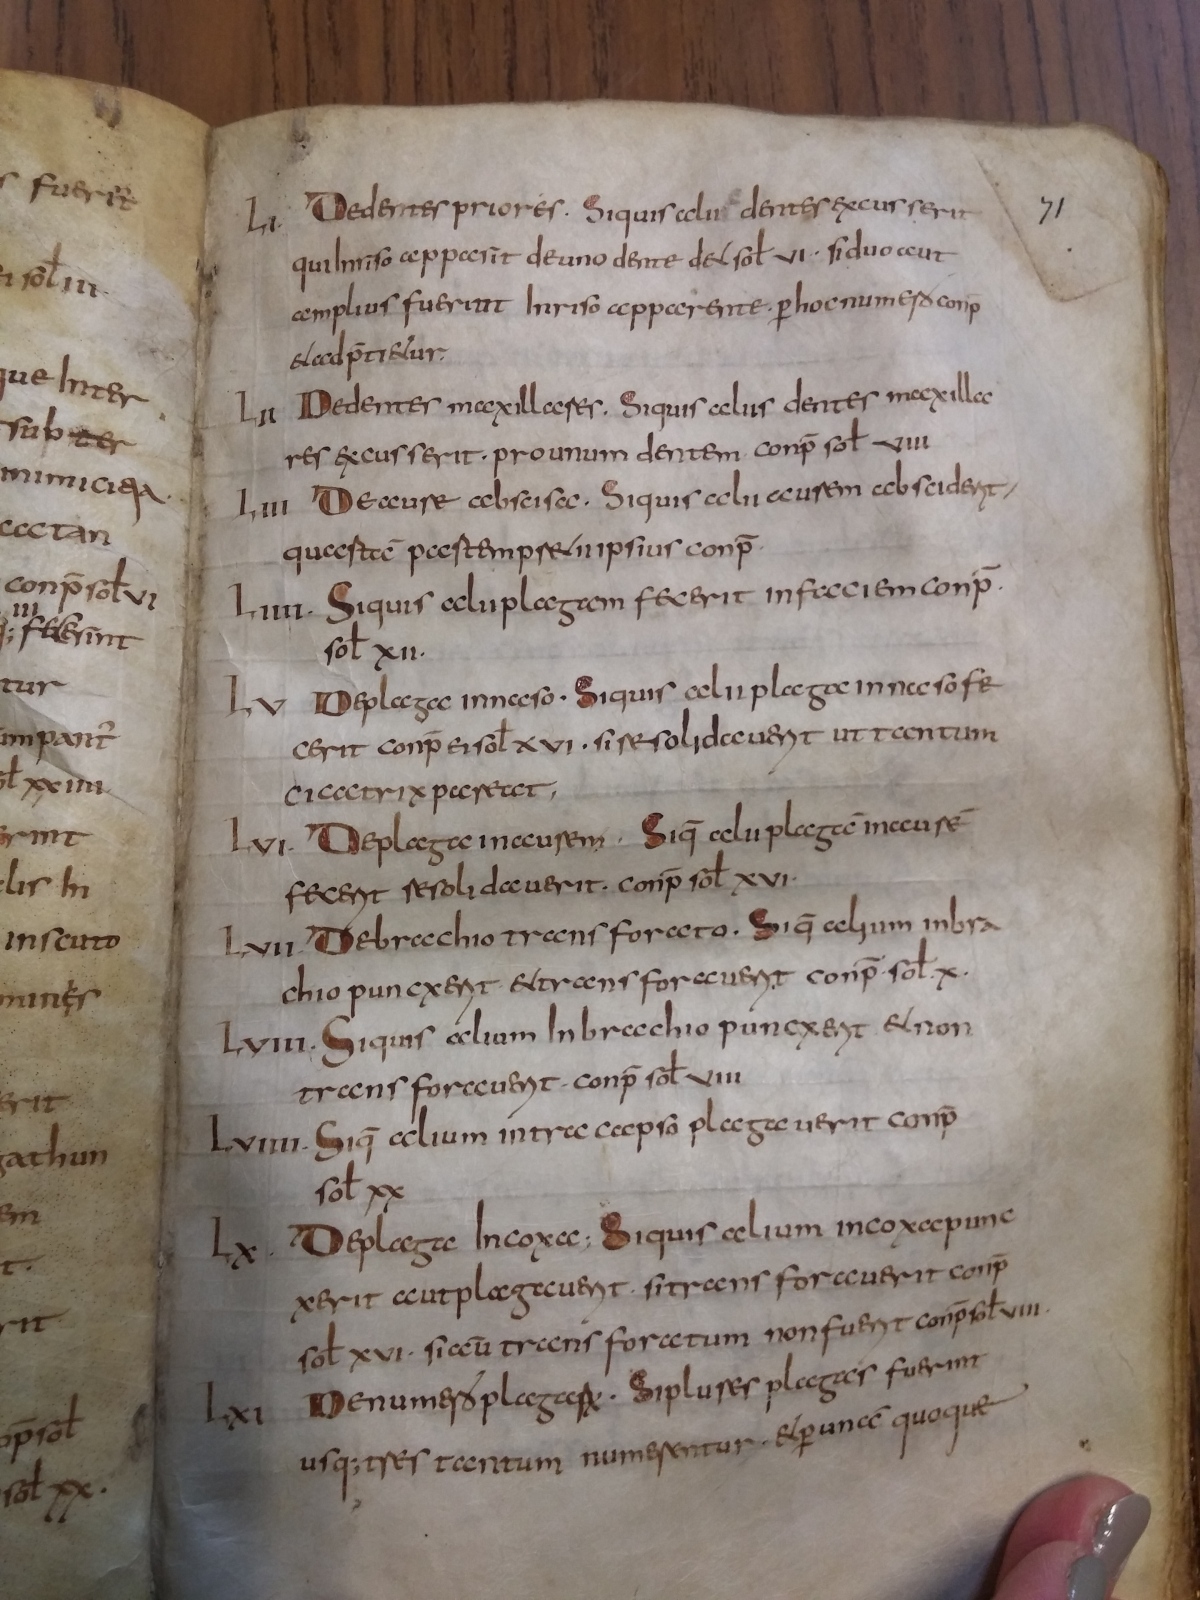 s fuerit
ei sol̄ iii
que Inter
sub ter
inimiciciā
actan
conp̄ sol̄ vi
iii
q; fecerint
tur
umpant̄
sol̄ xxiiii
erint
clis In
in scuto
erit
gathun
em
t.
rit
conp̄ sol̄
sol̄ xx.
71
Li. De dentes priores. Siquis alii dentes excusserit
qui In riso apparit de uno dente det sol̄ vi. si duo aut
amplius fuerint In riso apparente. p̱ hoc numero conp̄
et adp̄tietur.
Lii De dentes maxillares. Siquis alius dentes maxilla
res excusserit. pro unum dentem conp̄ sol̄ viii
Liii De ause abscisa. Siquis alii ausem absciderit,
quastā partem pretii ipsius conp̄
Liiii. Siquis alii plagam fecerit in faciem conp̄.
sol̄ xii.
Lv De plaga in naso. Siquis alii plaga in naso fe
cerit conp̄ ei sol̄ xvi. si resolidaverit ut tantum
cicatrix pareat,
Lvi. De plaga in ausem. Siq̄ alii plagā in ausē
fecerit resolidaverit. conp̄ sol̄ xvi.
Lvii. De brachio transforato. Siq̄ alium in bra
chio punxerit et transforaverit conp̄. sol̄. x.
Lviii. Siquis alium In brachio punxerit et non
transforaverit. conp̄ sol̄ viii
Lviiii. Siq̄ alium intra capso plagaverit conp̄
sol̄ xx
Lx. De plaga In coxa; Siquis alium in coxa punc
xerit aut plagaverit. si transforaverit conp̄
sol̄ xvi. si aū transforatum non fuerit conp̄ sol̄ viii.
Lxi De numero plagarum. Si plures plagas fuerint
usq; tres tantum numerentur. et p̱ unā quoque